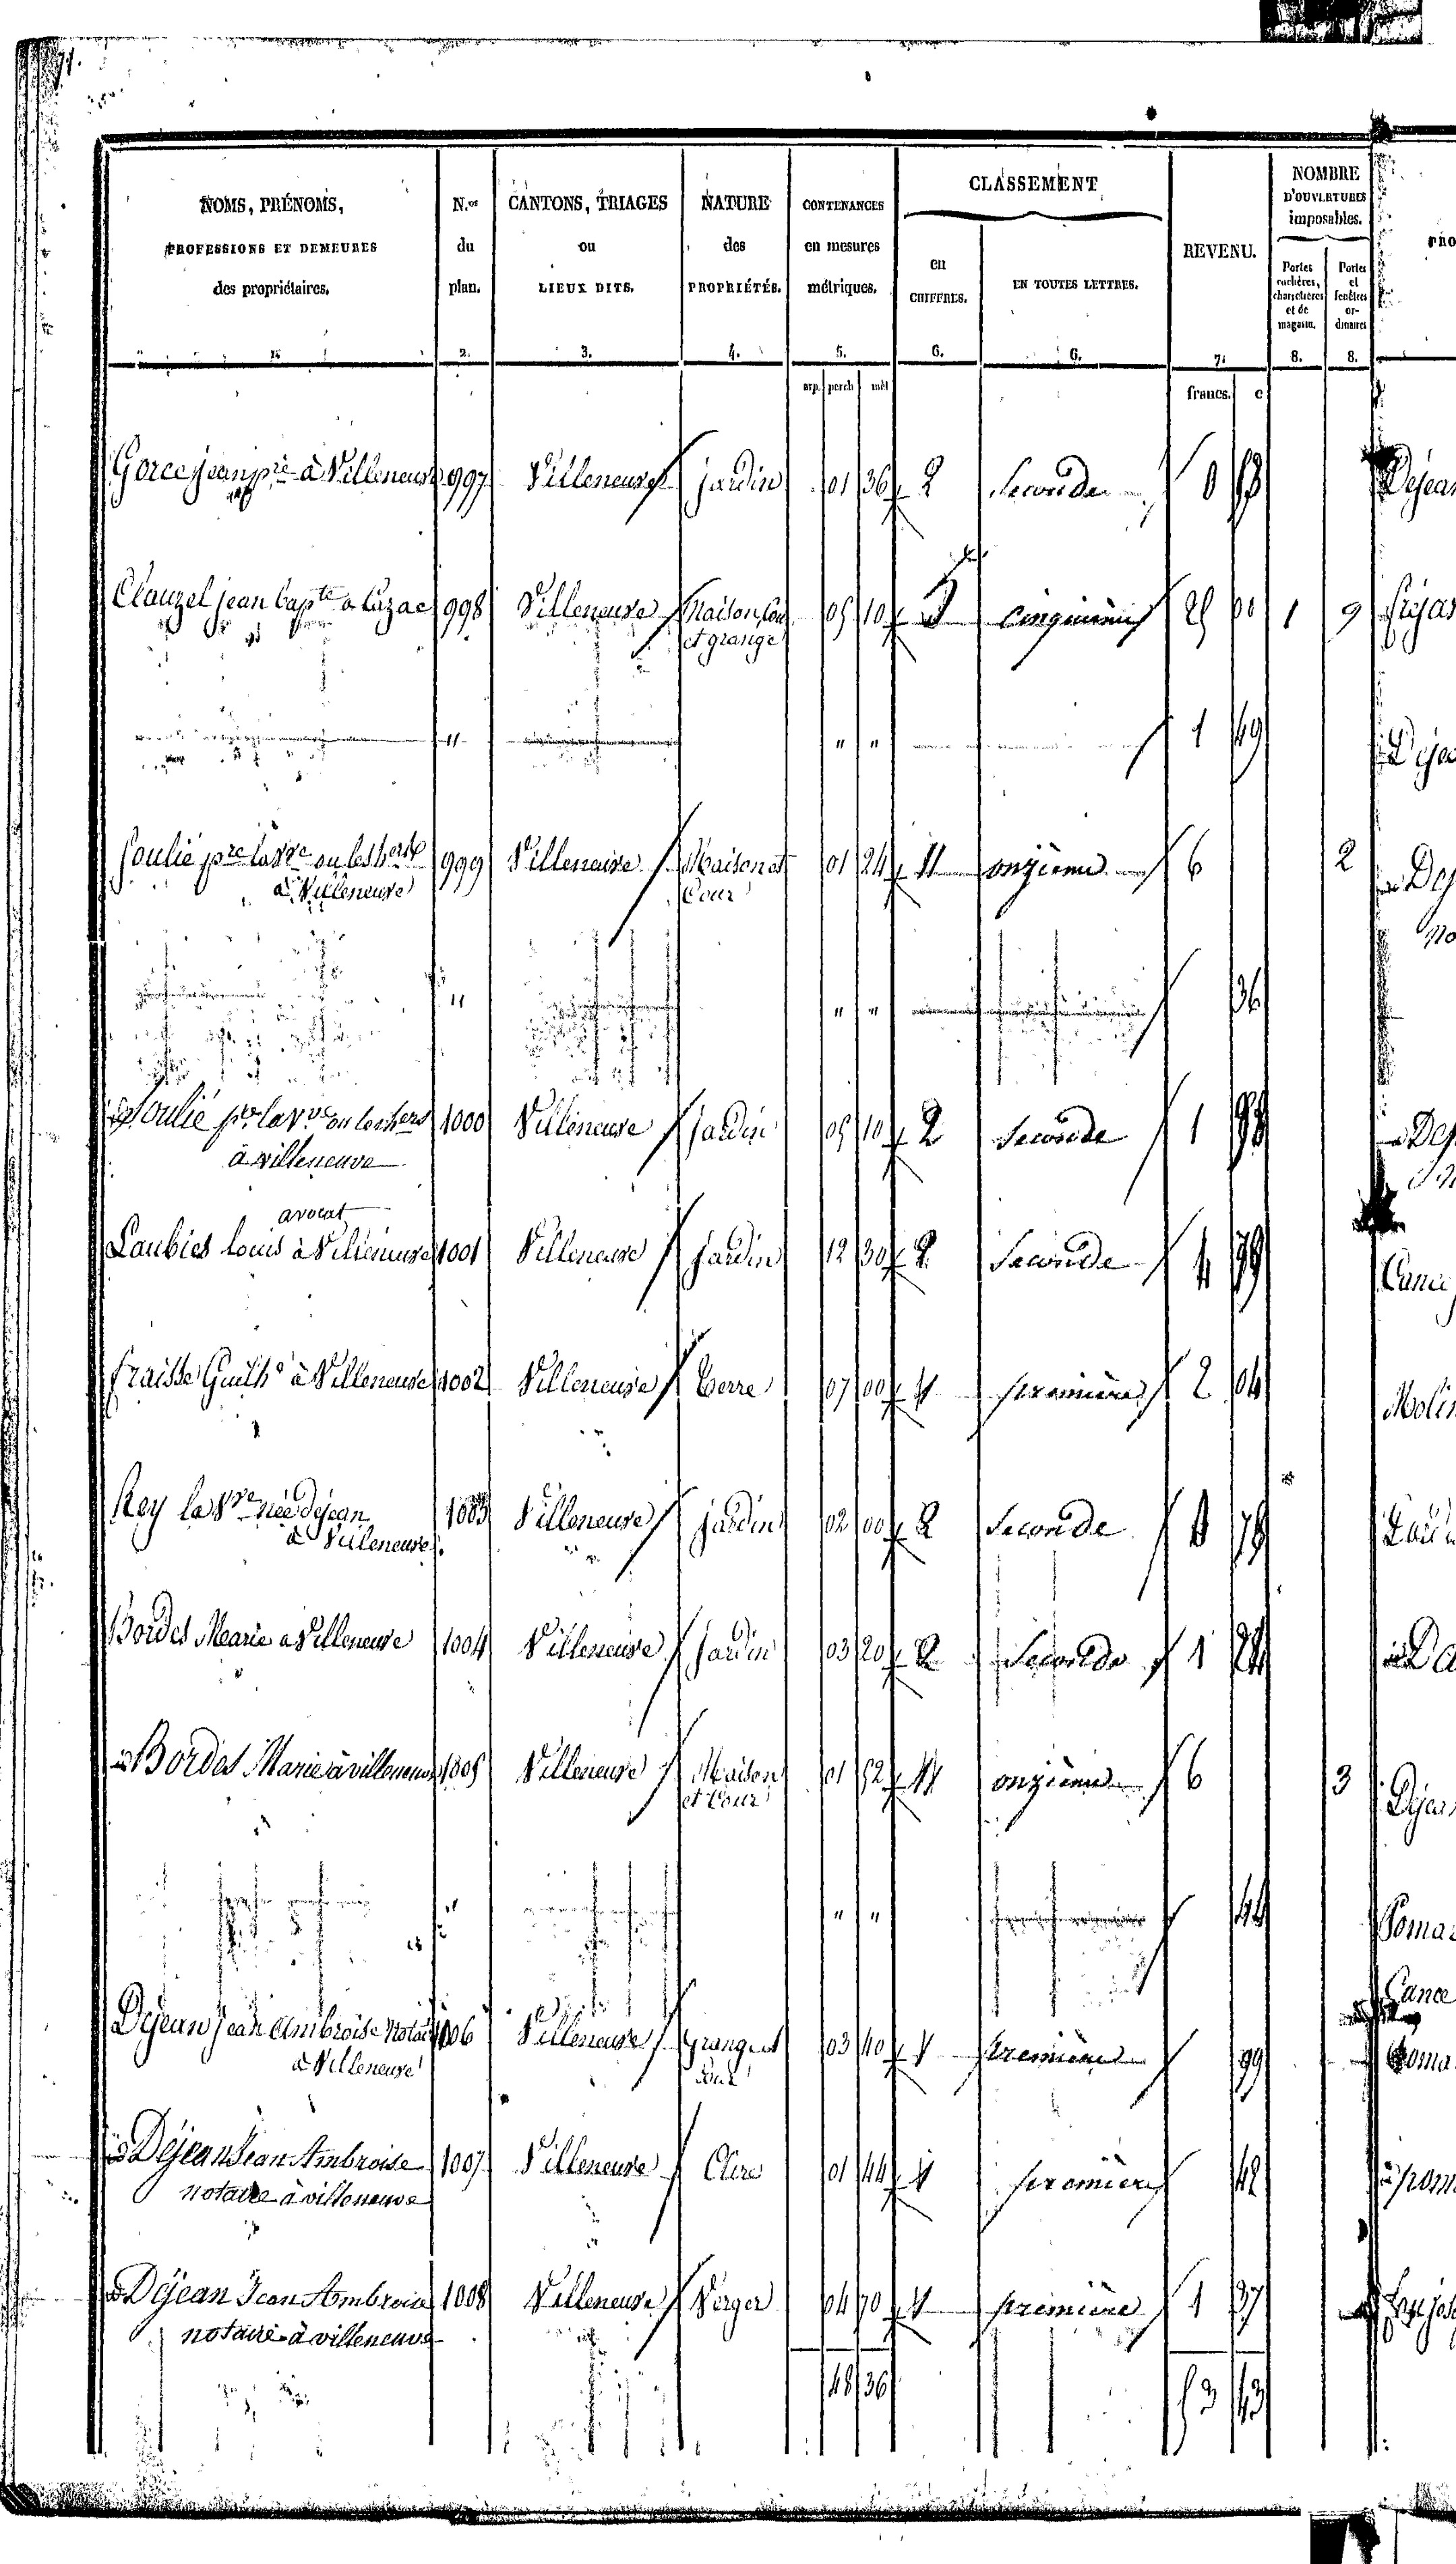 NOMS, PRÉNOMS, PROFESSIONS ET DEMEURES des propriétaires. N.os du plan. CANTONS, TRIAGES ou LIEUX DITS. NATURE des PROPRIÉTÉS. CONTENANCES en mesures métriques. CLASSEMENT en CHIFFRES. EN TOUTES LETTRES. REVENU. NOMBRE D'OUVERTURES imposables. Portes cochères, charretières et de magasin. Portes et fenêtres ordinaires
1. 2. 3. 4. 5. 6. 6. 7. 8. 8.
arp. perch mèt francs. c
Gorce jean pre à Villeneuve 997 Villeneuve jardin 01 36 2 Seconde 0
Clauzel jean bapte a Luzac 998 Villeneuve Maison, Cour 05 10 cinquième 25 00 1 9
et grange
" " " 1 49
Soulié pre la Vve ou les hers 999 Villeneuve Maison et 01 24 11 onzième 6 2
à Villeneuve Cour
" " " 36
Soulié pre la Vve ou les hers 1000 Villeneuve Jardin 05 10 2 Seconde 1 98
à villeneuve
avocat
Laubies louis à Villeneuve 1001 Villeneuve Jardin 12 30 2 Seconde 4 79
fraisse Guilhe à Villeneuve 1002 Villeneuve Terre 07 00 1 première 2 04
Rey la Vve née déjean 1003 Villeneuve jardin 02 00 2 Seconde 78
à Villeneuve
Bordes Marie a Villeneuve 1004 Villeneuve Jardin 03 20 2 Seconde 1 24
Bordes Marie à villeneuve 1005 Villeneuve Maison 01 52 11 onzième 6 3
et Cour
" " 44
Déjean Jean Ambroise Notaire 1006 Villeneuve Grange et 03 40 1 première 99
à Villeneuve Cour
Déjean Jean Ambroise 1007 Villeneuve 01 44 1 première 42
notaire à villeneuve
Déjean Jean Ambroise 1008 Villeneuve Verger 04 70 1 première 1 37
notaire à villeneuve
48 36 53 43